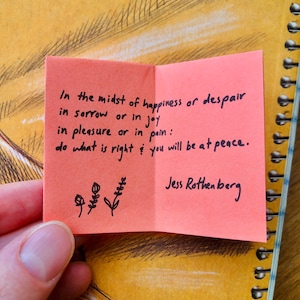 In the midst of happiness or despair
in sorrow or in joy
in pleasure or in pain:
do what is right & you will be at peace.
Jess Rothenberg